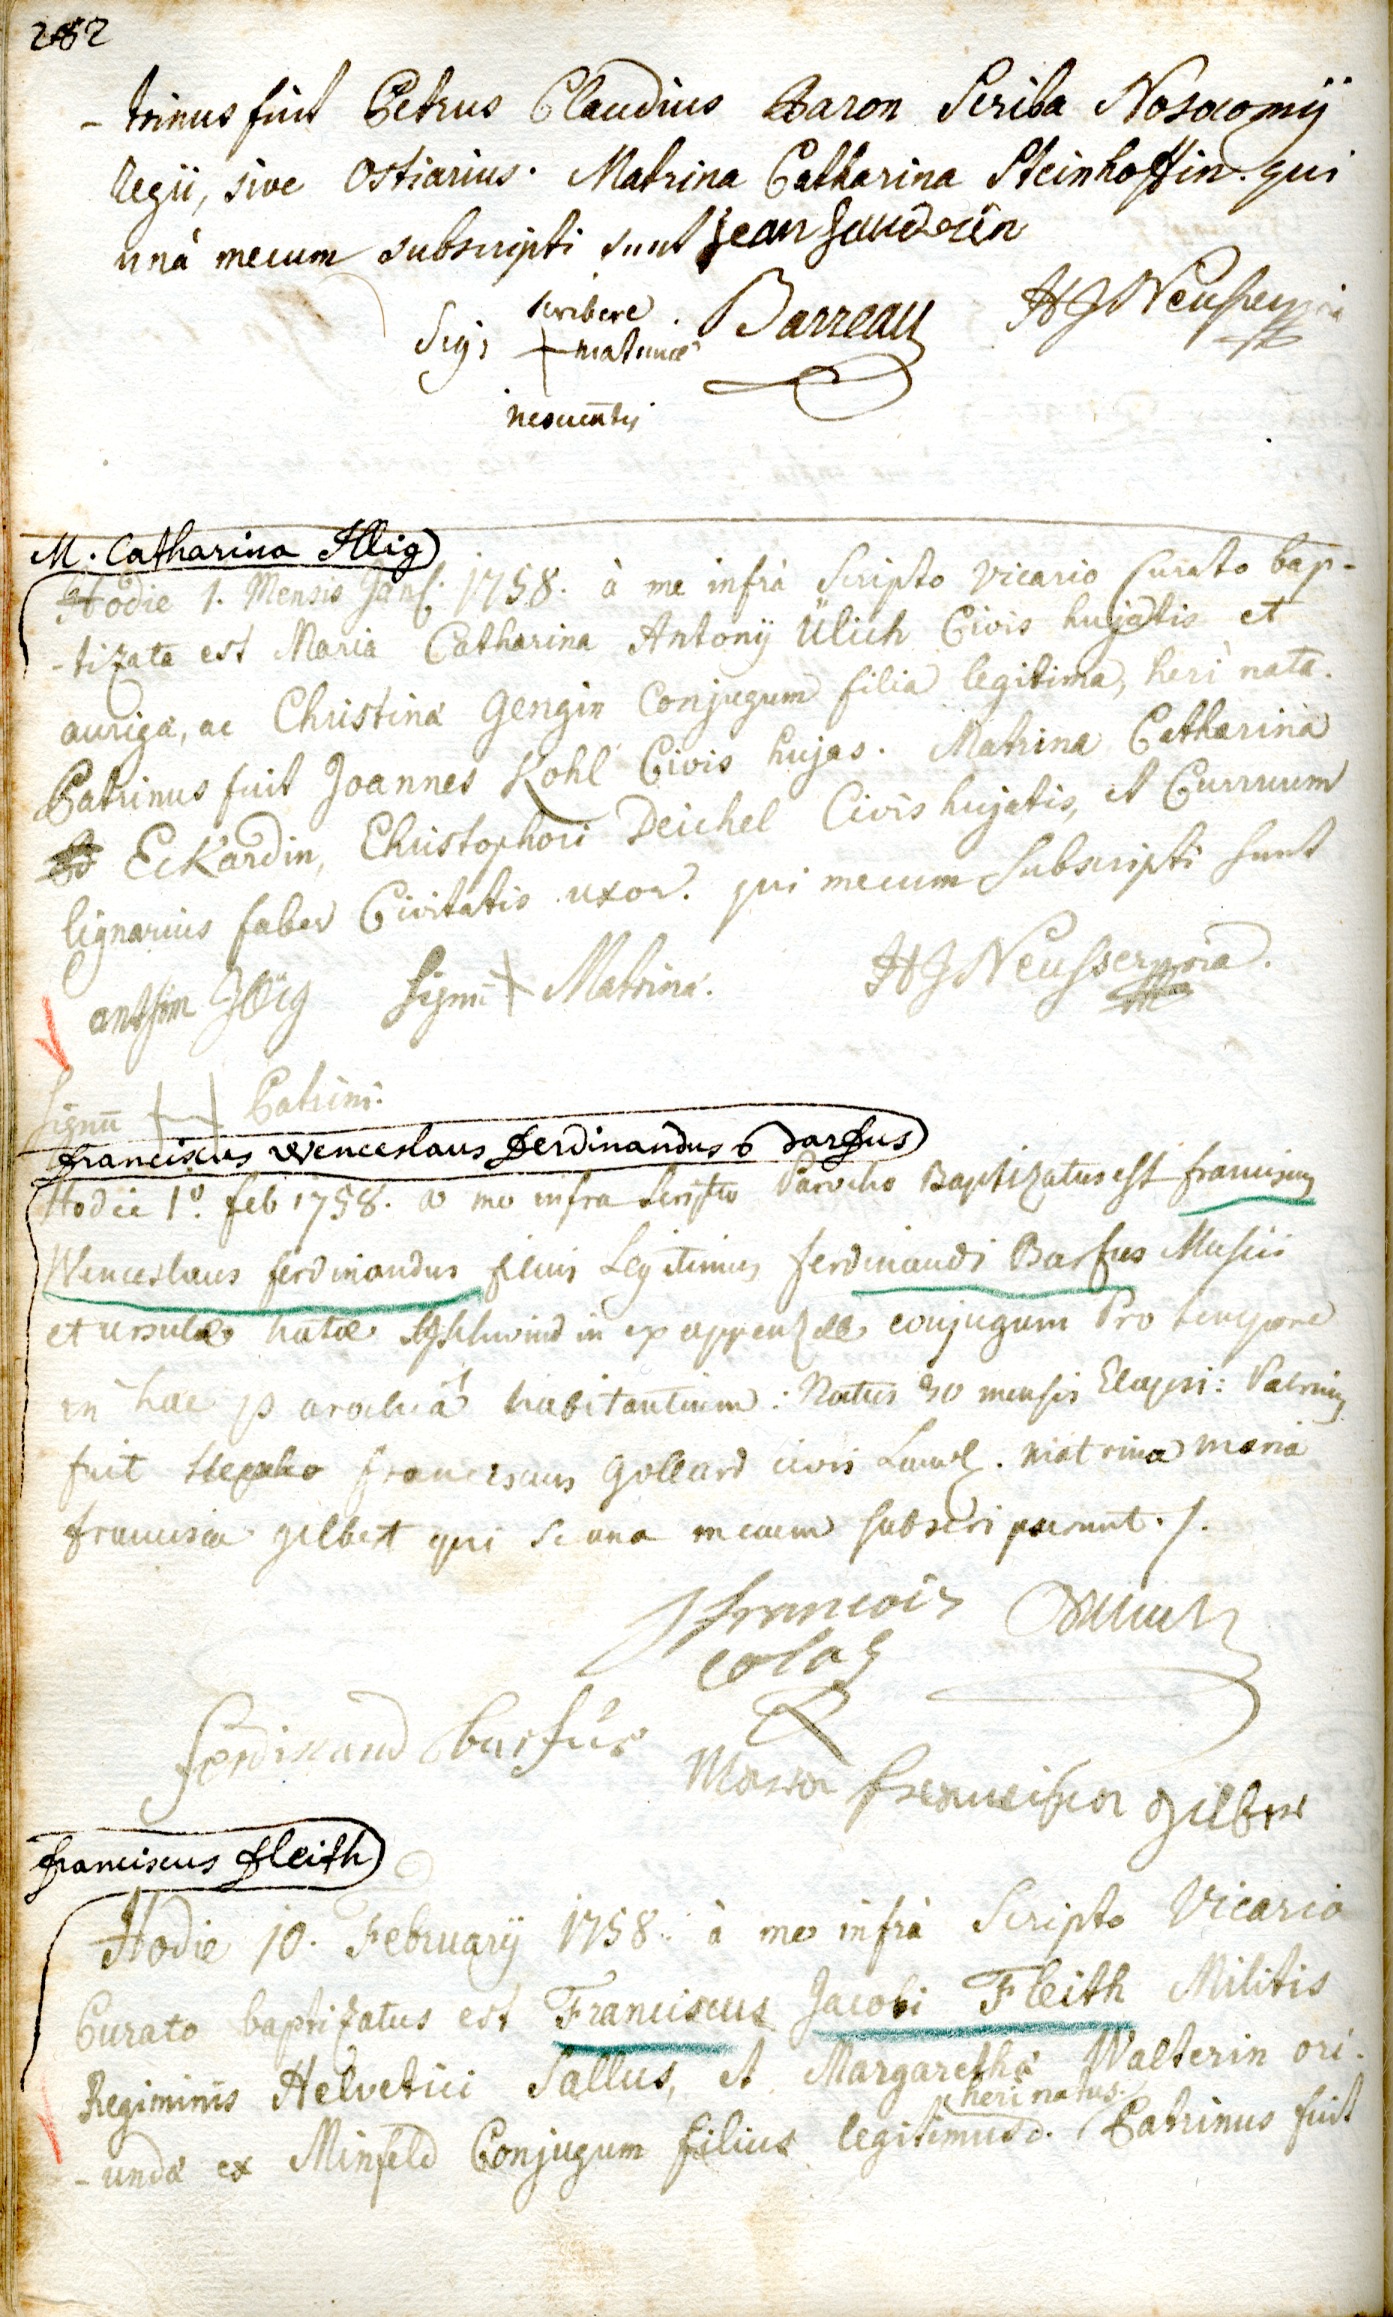 252
- trinus fuit Petrus Claudius Baron Scriba Nosocomij
Regii, sive Ostiarius. Matrina Catharina Steinhoffin. qui
unà mecum subscripti sunt Jean
Sig: scribere Barreau HJ Neusser
matrinae
nescientis
M. Catharina Illig
Hodie 1. Mensis 1758. à me infrà Scripto Vicario Curato bap-
-tizata est Maria Catharina Antonij Ülich Civis hujatis et
aurigæ, ac Christinæ Gengin Conjugum filia legitima, heri nata.
Patrinus fuit Joannes Kohl Civis hujas. Matrina Catharina
Eckardin, Christophori Deichel Civis hujatis, et Curruum
lignarius faber Civitatis uxor. qui mecum Subscripti Sunt
Illig Signū Matrinæ. HJ Neusser
Signū Patrini.
Franciscus Wenceslaus Ferdinandus Barfus
Hodie 1º feb 1758. a me infra Scripto Parocho Baptizatus est franciscus
Wenceslaus ferdinandus filius Legitimus ferdinandi Barfus Musici
et ursulæ natæ conjugum Pro tempore
in hac parochiâ habitantium: Natus 30 mensis Elapsi: Patrinus
fuit franciscus Gollard civis Matrina maria
francisca gilbert qui se una mecum subscripserunt ./.
francois
colas
ferdinand barfus
Maria francisca gilbert
franciscus fleith
Hodie 10. Februarij 1758. à me infrà Scripto Vicario
Curato baptizatus est Franciscus Jacobi Fleith Militis
Regiminis Helvetici Sallus, et Margarethæ Walterin ori-
heri natus.
-undæ ex Minfeld Conjugum filius legitimus. Patrinus fuit